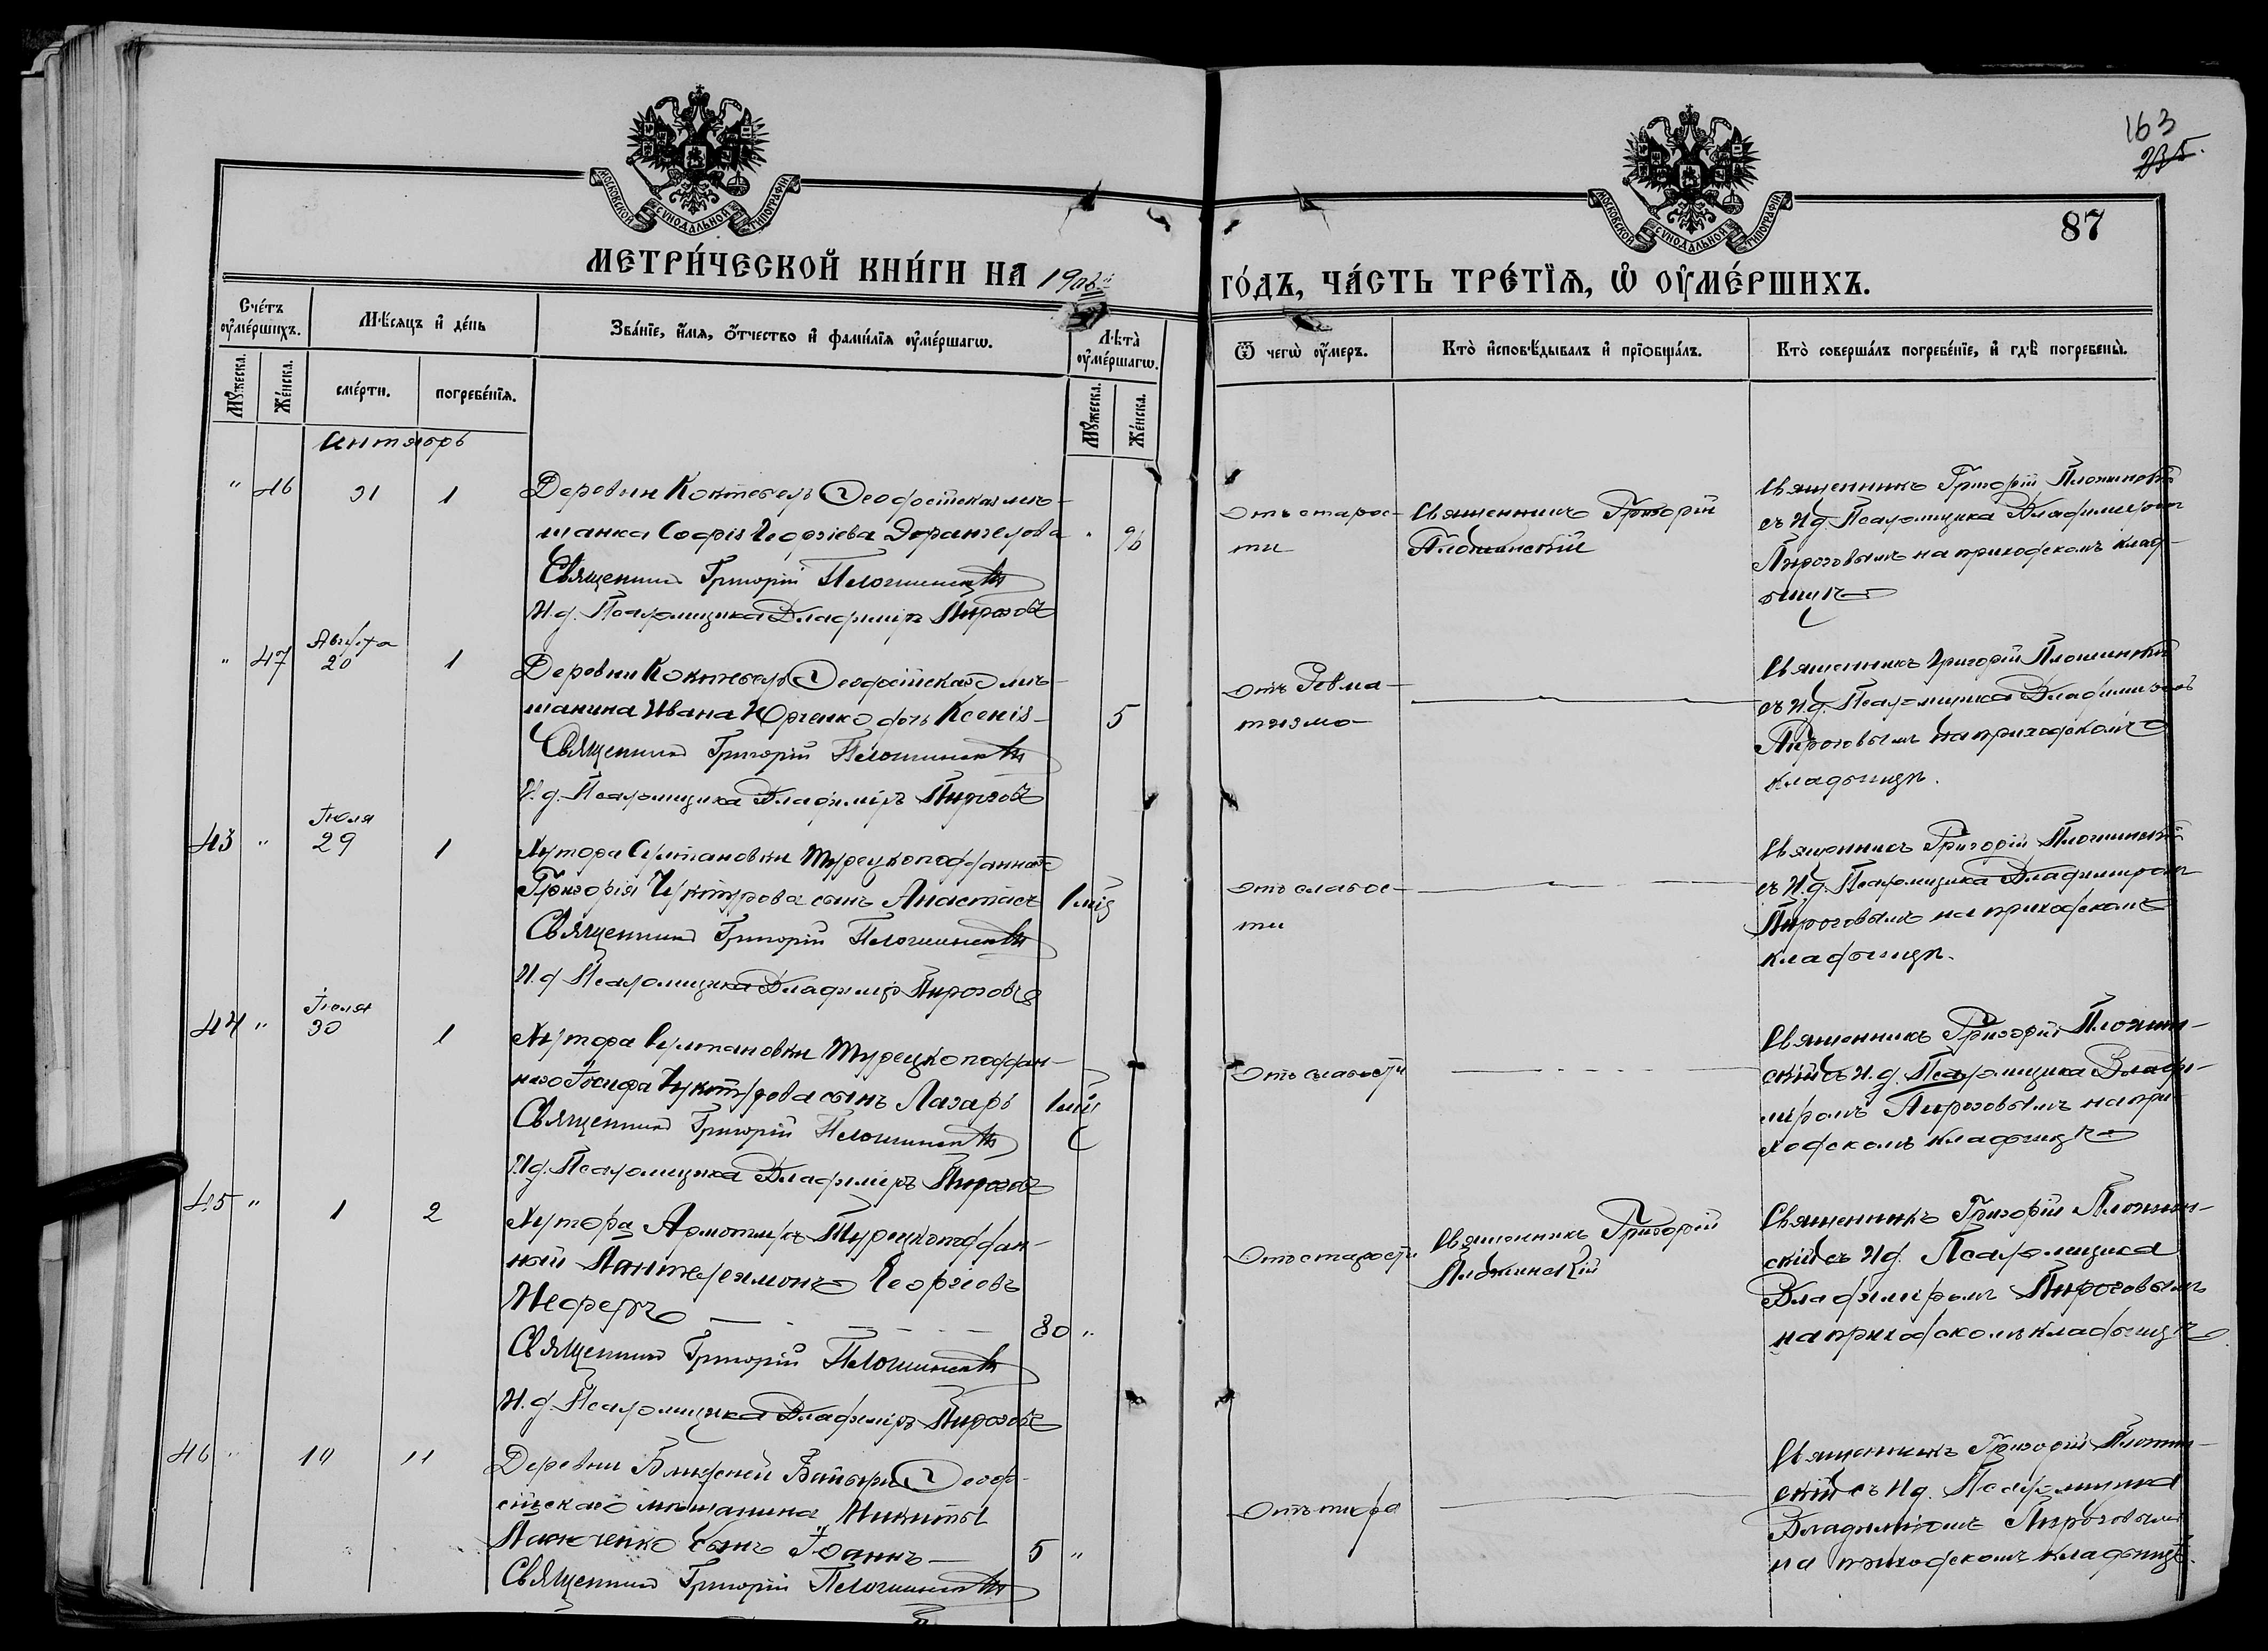 163
235.
МОСКОВСКОЙ СУНОДАЛЬНОЙ ТИПОГРАФІИ
МОСКОВСКОЙ СУНОДАЛЬНОЙ ТИПОГРАФІИ
87
МЕТРИ́ЧЕСКОЙ КНИ́ГИ НА 1906й
ГО́ДЪ, ЧА́СТЬ ТРЕ́ТІѦ, Ѡ҆ ОУ҆МЕ́РШИХЪ.
Сче́тъ оу҆ме́ршихъ.
Мѣ́сяцъ и҆ де́нь
Зва́нїе, и҆́мѧ, ѻ҆́тчество и҆ фами́лїѧ оу҆ме́ршагѡ.
Лѣта̀ оу҆ме́ршагѡ.
Ѿ чегѡ̀ оу҆́меръ.
Кто̀ и҆сповѣ́дывалъ и҆ прїѻбща́лъ.
Кто̀ соверша́лъ погребе́нїе, и҆ гдѣ̀ погребены̀.
Мꙋ́жеска.
Же́нска.
сме́рти.
погребе́нїѧ.
Мꙋ́жеска.
Же́нска.
Сентябрь
" 46 31 1
Деревни Коктебель Феодосійская мѣ-
щанка Софія Георгіева
" 96
Священникъ Григорій Пложинскій
И.д. Псаломщика Владиміръ Пироговъ
Отъ старос-
ти
Священникъ Григорій
Пложинскій
Священникъ Григорій Пложинскій
съ И.д. Псаломщика Владиміромъ
Пироговымъ на приходскомъ клад-
бищѣ
" 47 Августа
20 1
Деревни Коктебель Феодосійскаго мѣ-
щанина Ивана Юрченко дочь Ксенія
5
Священникъ Григорій Пложинскій
И.д. Псаломщика Владиміръ Пироговъ
Отъ Ревма-
тизма
Священникъ Григорій Пложинскій
съ И.д. Псаломщика Владиміромъ
Пироговымъ на приходскомъ
кладбищѣ.
43 " Іюля
29 1
Хутора Султановки Турецкоподданнаго
Григорія сынъ Анастасъ
Священникъ Григорій Пложинскій
И.д. Псаломщика Владиміръ Пироговъ
Отъ слабос-
ти
Священникъ Григорій Пложинскій
съ И.д. Псаломщика Владиміромъ
Пироговымъ на приходскомъ
кладбищѣ.
44 " Іюля
30 1
Хутора Султановки Турецкоподдан-
наго Іосифа сынъ Лазарь
Священникъ Григорій Пложинскій
И.д. Псаломщика Владиміръ Пироговъ
Отъ слабости
Священникъ Григорій Пложин-
скій съ И.д. Псаломщика Влади-
міромъ Пироговымъ на при-
ходскомъ кладбищѣ
45 " 1 2
Хутора Турецкоподдан-
ный Пантелеимонъ Георгіевъ
80 "
Священникъ Григорій Пложинскій
И.д. Псаломщика Владиміръ Пироговъ
Отъ старости
Священникъ Григорій
Пложинскій
Священникъ Григорій Пложин-
скій съ И.д. Псаломщика
Владиміромъ Пироговымъ
на приходскомъ кладбищѣ
46 " 10 11
Деревни Феодо-
сійскаго мѣщанина Никиты
сынъ Іоаннъ
5 "
Священникъ Григорій Пложинскій
Отъ тифа
Священникъ Григорій Пложин-
скій съ И.д. Псаломщика
Владиміромъ Пироговымъ
на приходскомъ кладбищѣ.